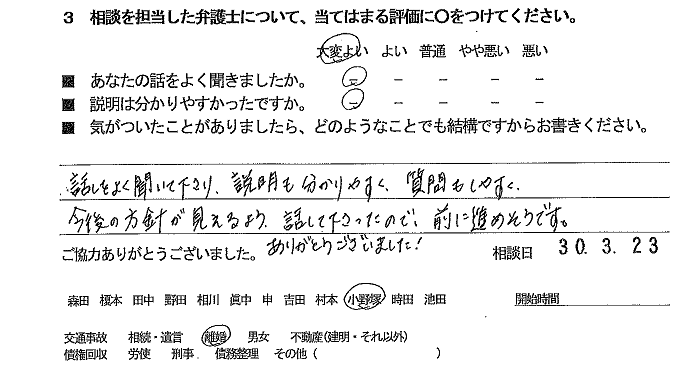 3 相談を担当した弁護士について、当てはまる評価に〇をつけてください。
大変よい よい 普通 やや悪い 悪い
あなたの話をよく聞きましたか。 － － － － －
説明は分かりやすかったですか。 － － － － －
気がついたことがありましたら、どのようなことでも結構ですからお書きください。
話しをよく聞いて下さり、説明も分かりやすく、質問もしやすく、
今後の方針が見えるよう、話して下さったので、前に進めそうです。
ありがとうございました!
ご協力ありがとうございました。 相談日 30. 3. 23
森田 榎本 田中 野田 相川 眞中 申 吉田 村本 小野塚 時田 池田 開始時間
交通事故 相続・遺言 離婚 男女 不動産(建明・それ以外)
債権回収 労使 刑事 債務整理 その他 ( )